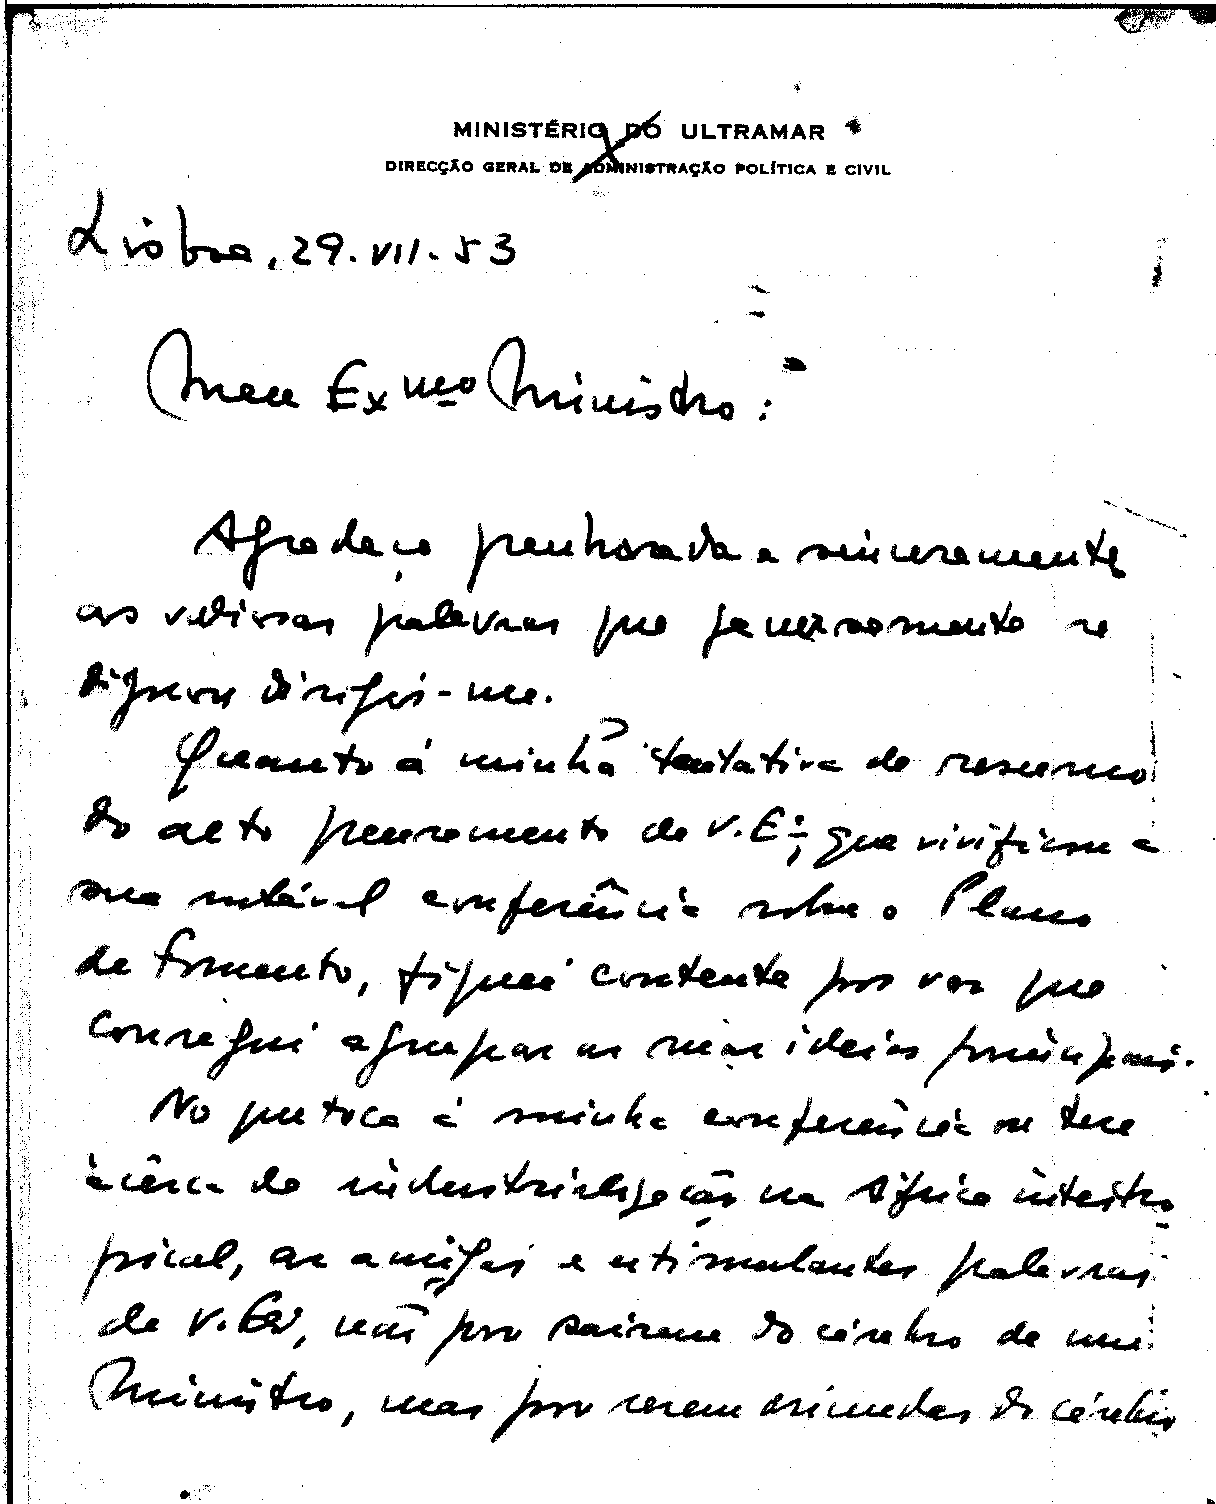 MINISTÉRIO DO ULTRAMAR
DIRECÇÃO GERAL DE ADMINISTRAÇÃO POLÍTICA E CIVIL
Lisboa, 29.VII.53
Meu Exmo Ministro:
Agradeço penhorada e sinceramente
as valiosas palavras que generosamente se
dignou dirigir-me.
Quanto á minha tentativa de resumo
do alto pensamento de V. Exª, que vivificou a
sua notável conferência sobre o Plano
de Fomento, fiquei contente por ver que
consegui agrupar as suas ideias principais.
No que toca á minha conferência
àcêrca da industrialização na África intertro-
pical, as amigas e estimulantes palavras
de V. Exª, não por saírem do cérebro de um
Ministro, mas por serem do cérebro